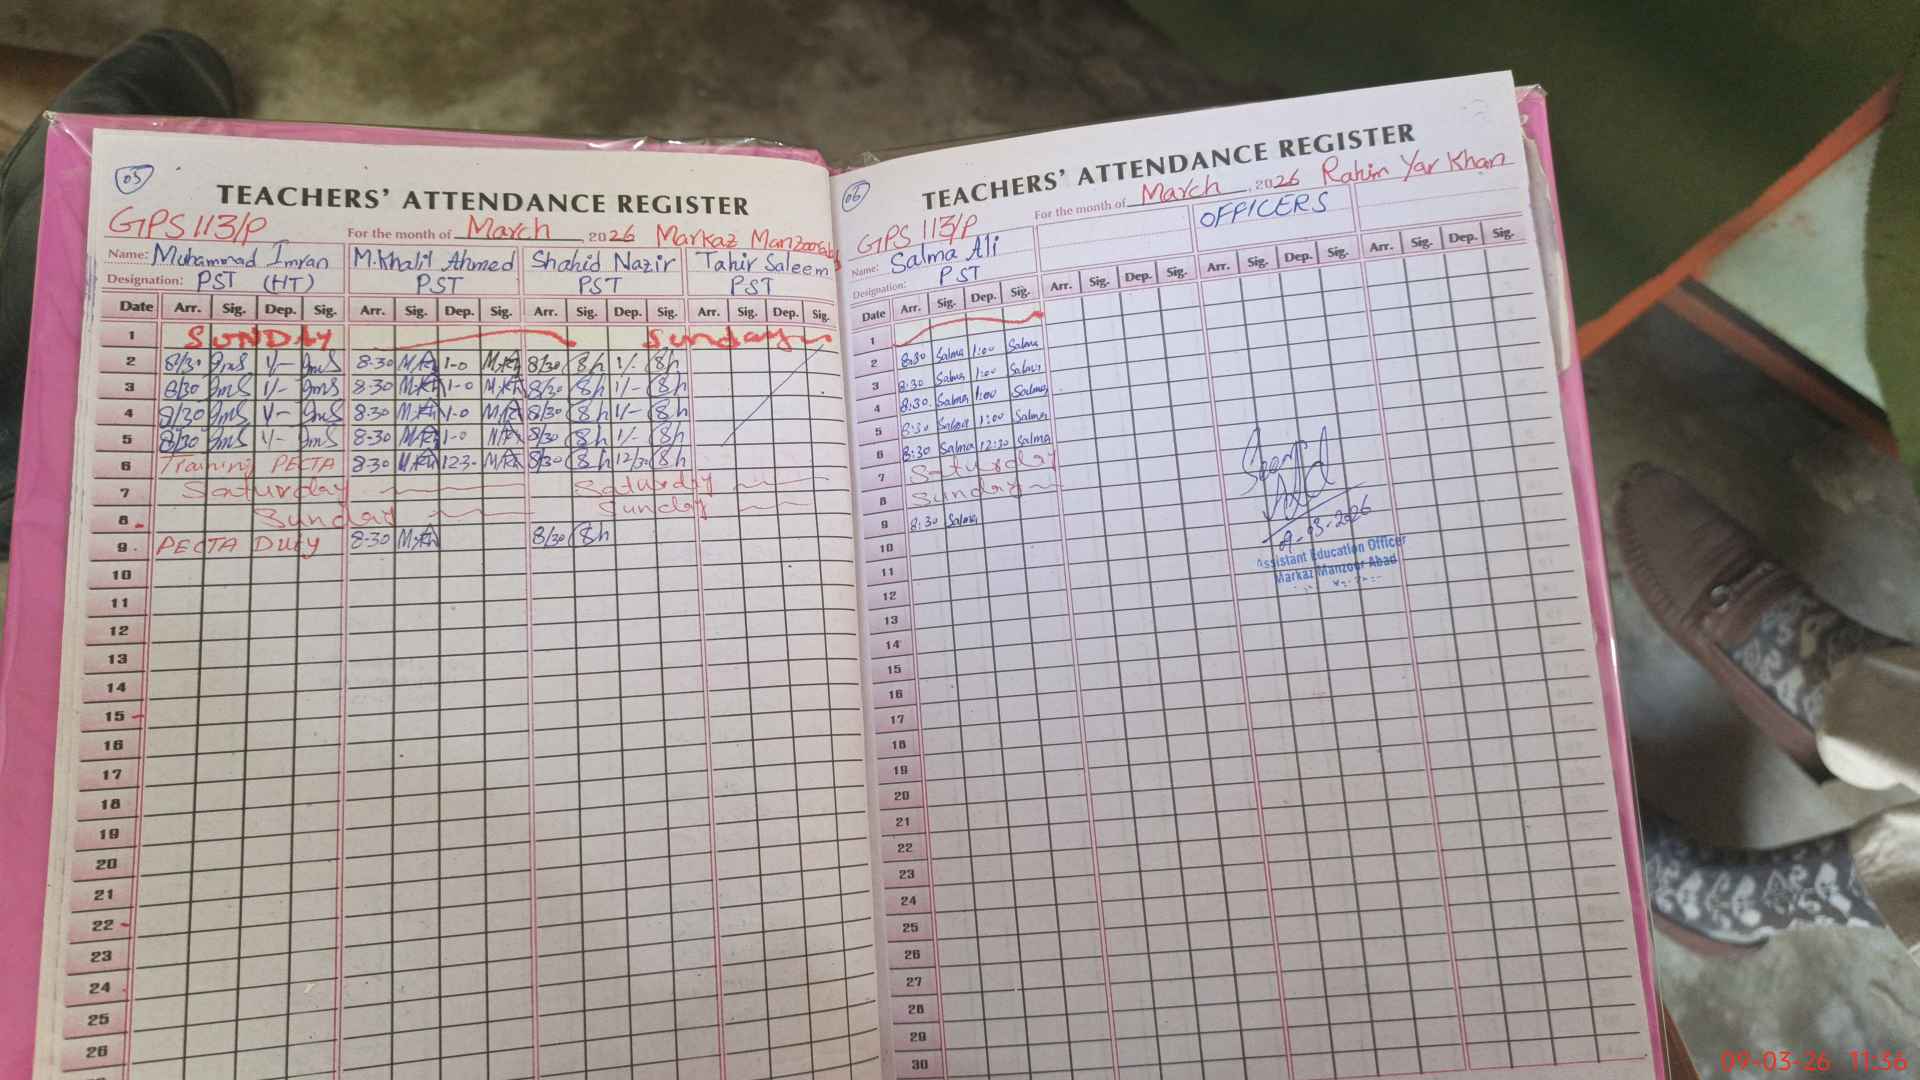 05
TEACHERS' ATTENDANCE REGISTER
GPS 113/P For the month of March, 2026 Markaz Manzoorabad
Name: Muhammad Imran M.Khalil Ahmed Shahid Nazir Tahir Saleem
Designation: PST (HT) PST PST PST
Date Arr. Sig. Dep. Sig. Arr. Sig. Dep. Sig. Arr. Sig. Dep. Sig. Arr. Sig. Dep. Sig.
1 SUNDAY Sunday
2 8/30 1/- 8-30 1-0 8/30 8h 1/- 8h
3 8/30 1/- 8-30 1-0 8/30 8h 1/- 8h
4 8/30 1/- 8-30 1-0 8/30 8h 1/- 8h
5 8/30 1/- 8-30 1-0 8/30 8h 1/- 8h
6 Training PECTA 8-30 12-3- 8/30 8h 12/30 8h
7 Saturday Saturday
8 Sunday Sunday
9 PECTA Duty 8-30 8/30 8h
10
11
12
13
14
15
16
17
18
19
20
21
22
23
24
25
26
06
TEACHERS' ATTENDANCE REGISTER
GPS 113/P For the month of March, 2026 Rahim Yar Khan
Name: Salma Ali OFFICERS
Designation: PST
Date Arr. Sig. Dep. Sig. Arr. Sig. Dep. Sig. Arr. Sig. Dep. Sig. Arr. Sig. Dep. Sig.
1
2 8:30 Salma 1:00 Salma
3 8:30 Salma 1:00 Salma
4 8:30 Salma 1:00 Salma
5 8:30 Salma 1:00 Salma
6 8:30 Salma 12:30 Salma
7 Saturday
8 Sunday
9 8:30 Salma
10
11
12
13
14
15
16
17
18
19
20
21
22
23
24
25
26
27
28
29
30
9-03-2026
Assistant Education Officer
Markaz Manzour Abad
09-03-26 11:36